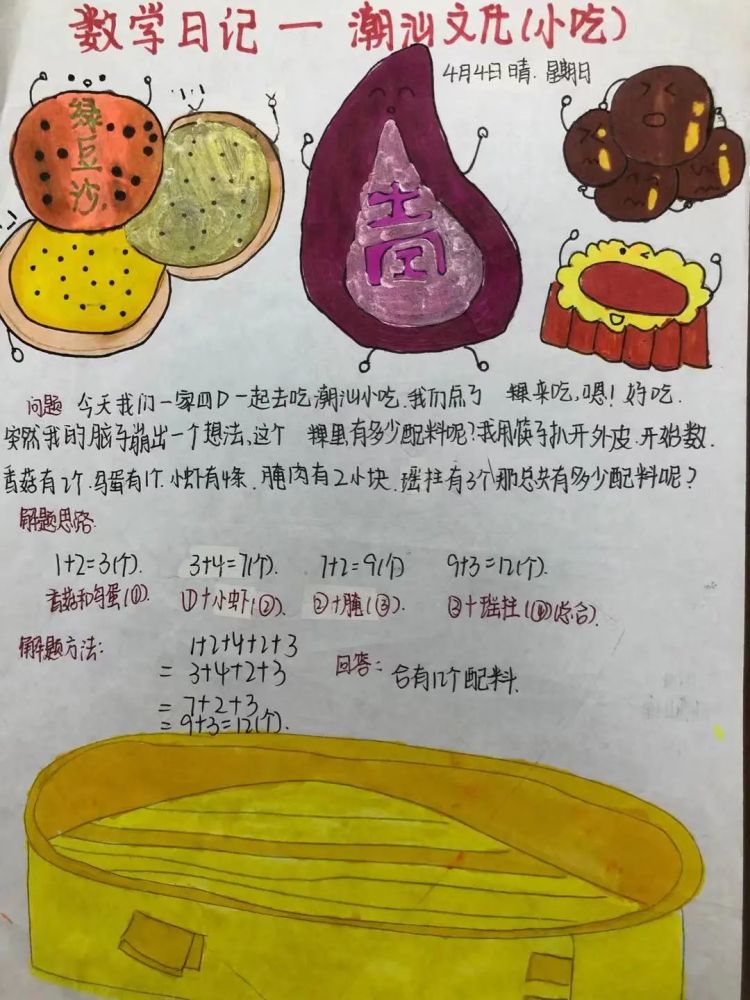 数学日记 — 潮汕文化(小吃)
4月4日 晴. 星期日
绿豆沙
问题 今天我们一家四口一起去吃潮汕小吃.我们点了 粿来吃,嗯! 好吃.
突然我的脑子崩出一个想法,这个 粿里有多少配料呢?我用筷子扒开外皮.开始数.
香菇有2个.鸟蛋有1个.小虾有4条. 腌肉有2小块. 瑶柱有3个,那总共有多少配料呢?
解题思路:
1+2=3(个). 3+4=7(个). 7+2=9(个) 9+3=12(个).
香菇和鸟蛋(①). ①+小虾(②). ②+腌(③). ③+瑶柱(④)(总合).
解题方法: 1+2+4+2+3
= 3+4+2+3
= 7+2+3
= 9+3=12(个).
回答: 合有12个配料.